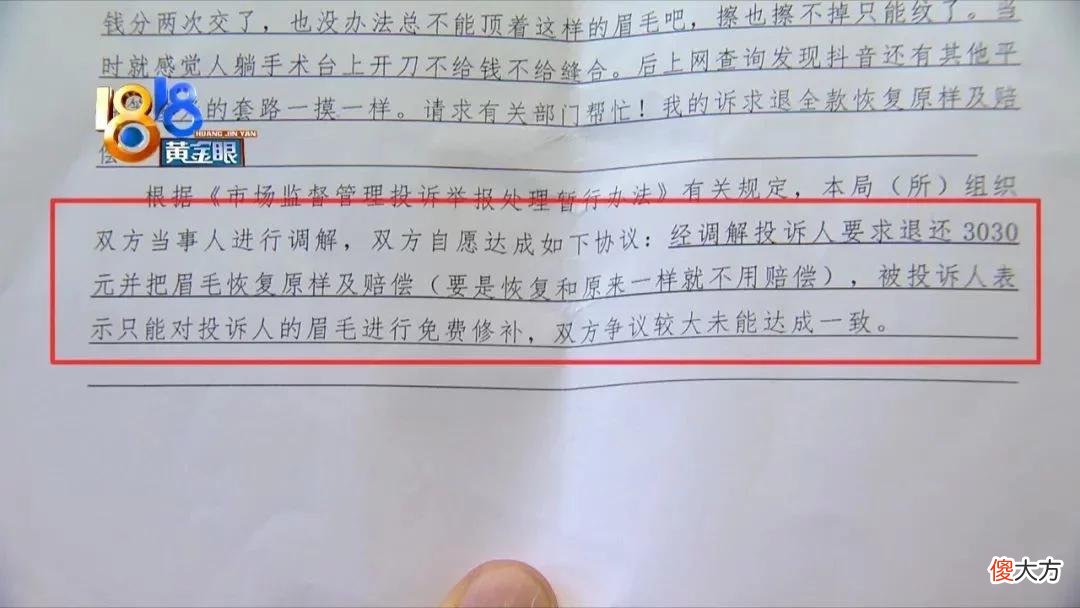 钱分两次交了，也没办法总不能顶着这样的眉毛吧，擦也擦不掉只能纹了。当
时就感觉人躺手术台上开刀不给钱不给缝合。后上网查询发现抖音还有其他平
的套路一摸一样。请求有关部门帮忙！我的诉求退全款恢复原样及赔
偿
1818
HUANG JIN YAN
黄金眼
根据《市场监督管理投诉举报处理暂行办法》有关规定，本局（所）组织
双方当事人进行调解，双方自愿达成如下协议：经调解投诉人要求退还3030
元并把眉毛恢复原样及赔偿（要是恢复和原来一样就不用赔偿），被投诉人表
示只能对投诉人的眉毛进行免费修补，双方争议较大未能达成一致。
傻大方